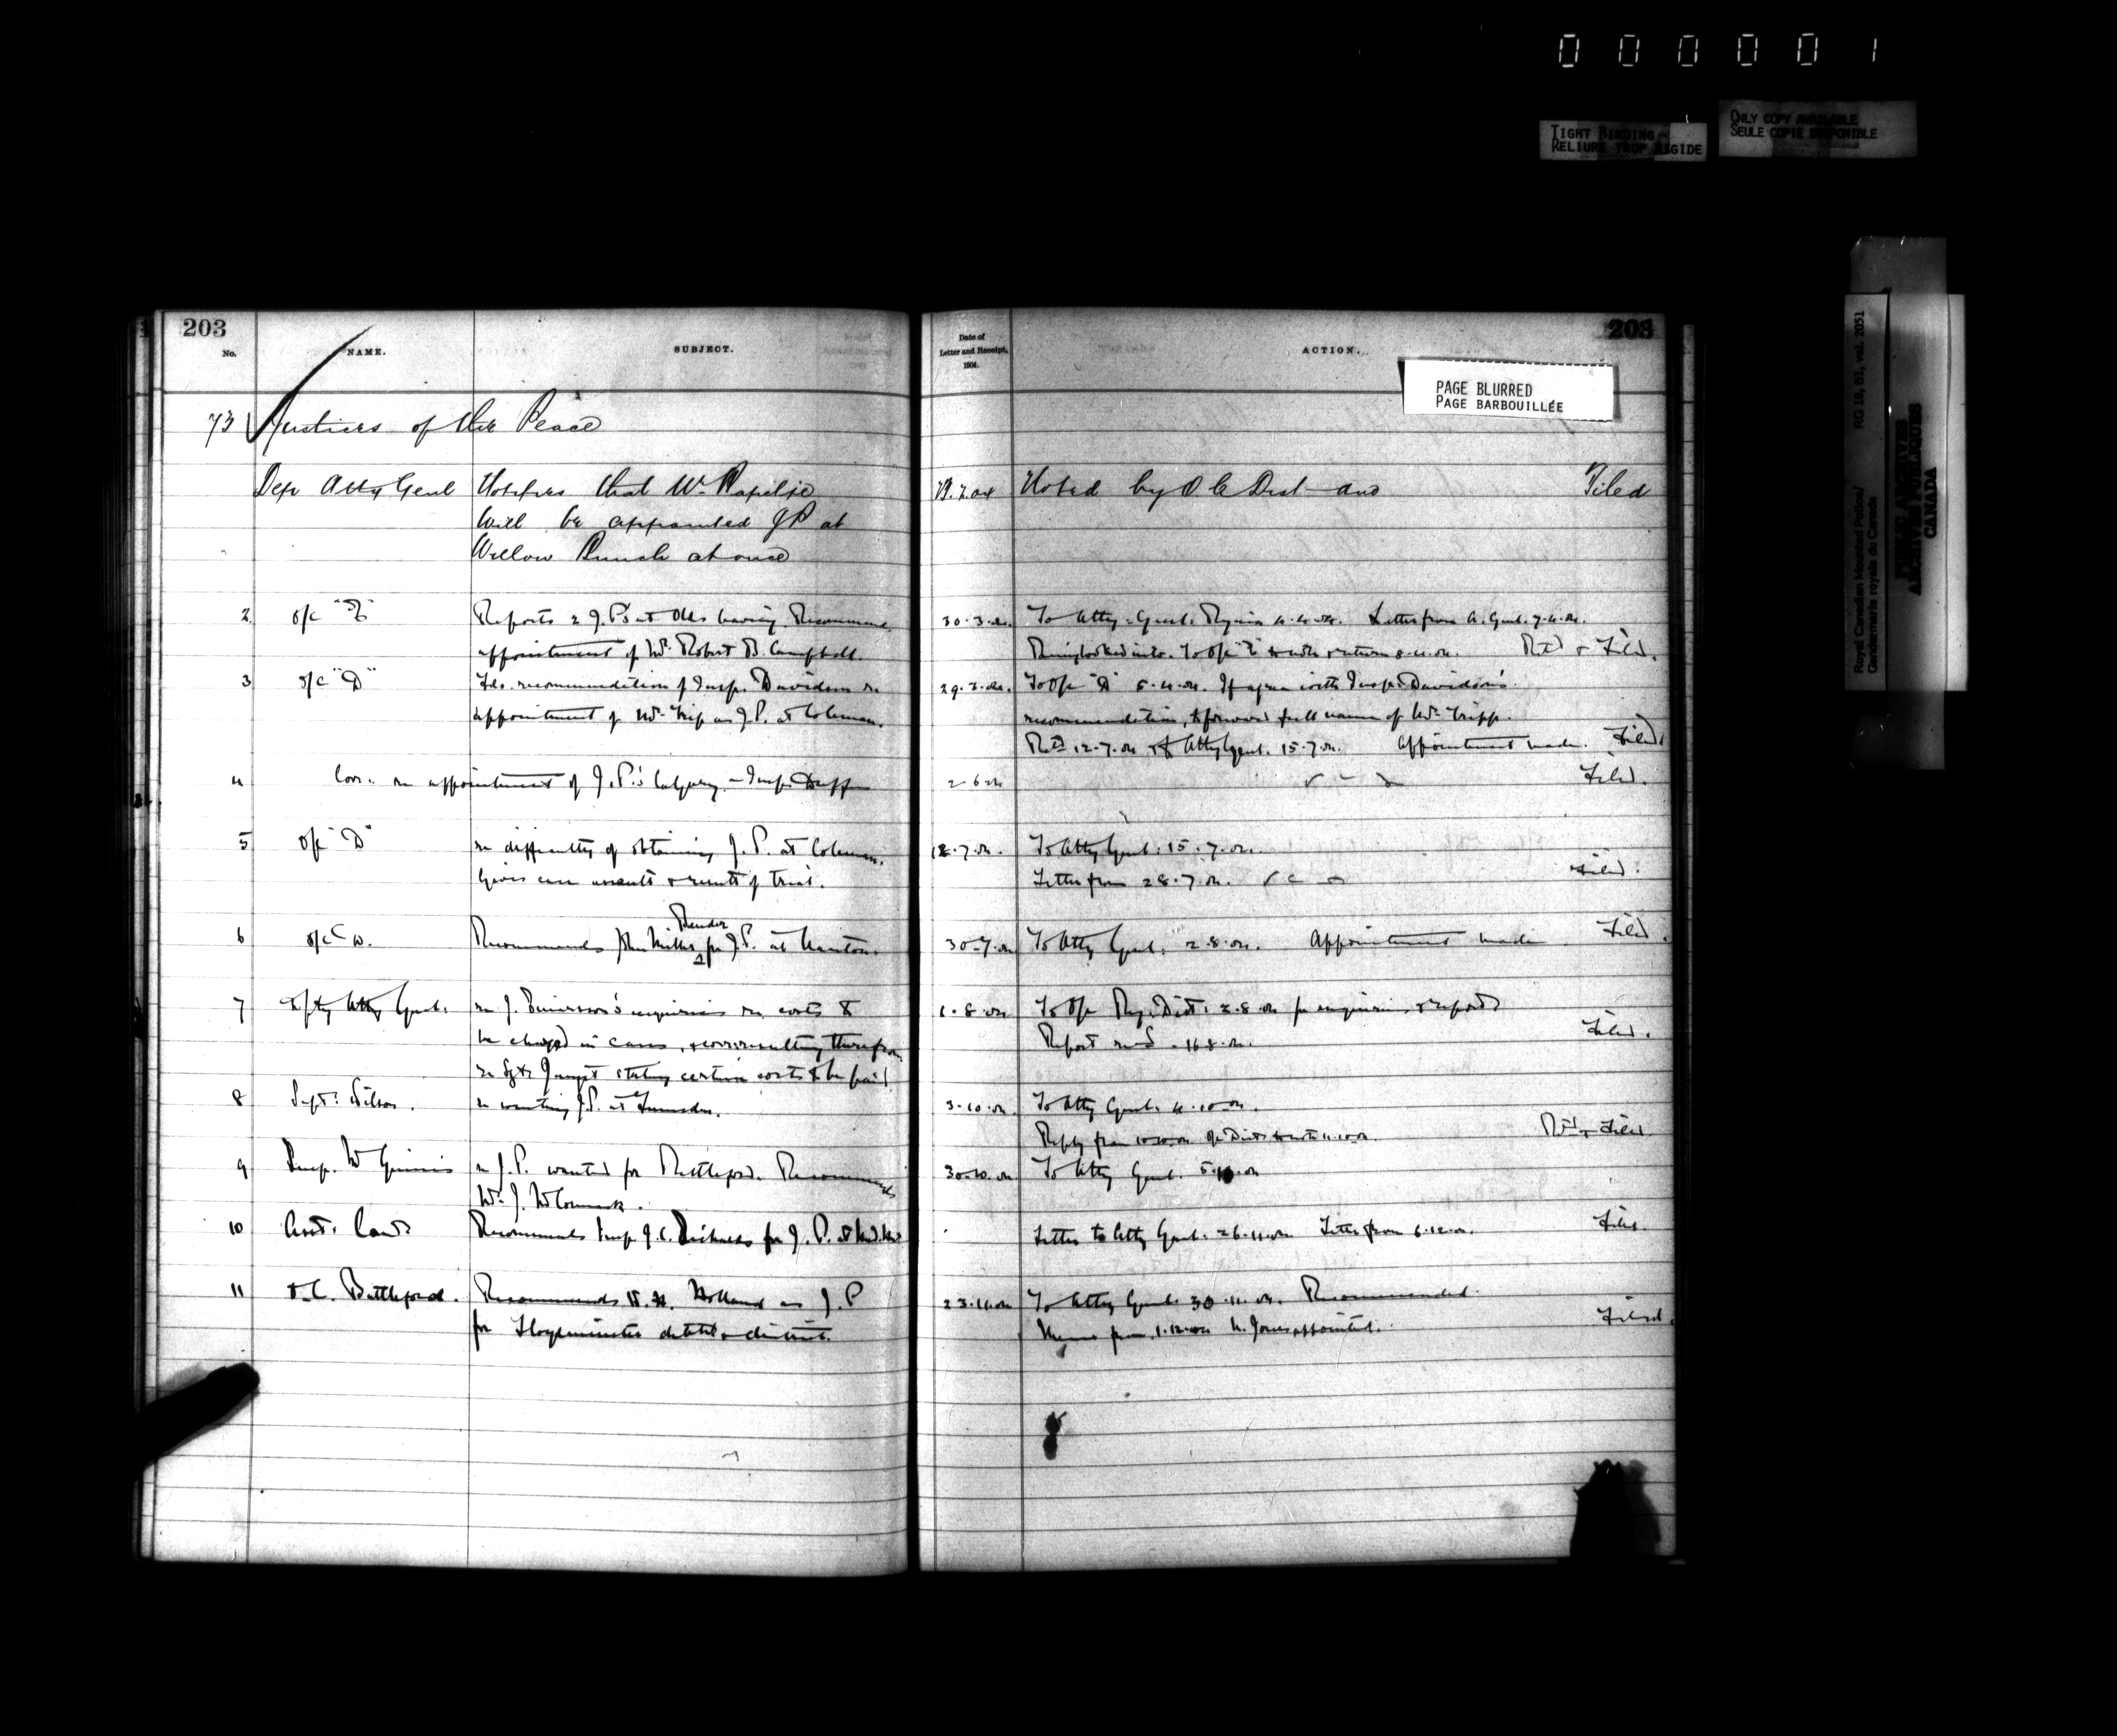 000001
TIGHT BINDING
RELIURE TROP RIGIDE
ONLY COPY AVAILABLE
SEULE COPIE DISPONIBLE
Royal Canadian Mounted Police/
Gendarmerie royale du Canada
RG 18, B1, vol. 2051
PUBLIC ARCHIVES
ARCHIVES PUBLIQUES
CANADA
203
203
No.
NAME.
SUBJECT.
Date of
Letter and Receipt,
1904.
ACTION.
PAGE BLURRED
PAGE BARBOUILLÉE
73 Justices of the Peace
Dep Atty Genl Notifies that Mr Rapelje 19.2.04 Noted by O C Dist and Filed
will be appointed JP at
Willow Bunch at once
2 O/C "E" Reports 2 J.P's at Olds leaving. Recommends 30.3.04. To Atty. Genl. Regina 4.4.04. Letter from A. Genl. 7.4.04.
appointment of Mr. Robert B. Campbell. Being looked into. To O/C "E" to note & return 8.4.04. Retd & Filed.
3 O/C "D" Fds. recommendation of Insp. Davidson re 29.3.04. To O/C "D" 5.4.04. If agree with Insp. Davidson's
appointment of Mr. Trip as J.P. at Coleman. recommendation, to forward full name of Mr. Tripp.
Retd 12.7.04 & Atty Genl. 15.7.04. Appointment made. Filed.
4 Corr. re appointment of J.P.'s Calgary - Insp. Duff 2.6.04 Filed.
5 O/C "D" re difficulty of obtaining J.P. at Coleman. 12.7.04. To Atty Genl. 15.7.04.
Gives case assault & result of trial. Letter from 28.7.04. Filed.
6 O/C Recommends John Miller Bender for J.P. at Nanton. 30.7.04 To Atty Genl. 2.8.04. Appointment made Filed.
7 Dpty Atty Genl. re J. inquiries re costs to 1.8.04 To O/C Reg. Dist. 2.8.04 for inquiries & report
be charged in cases, & corr. resulting therefrom Report recd 16.8.04. Filed.
re Sgt. stating certain costs to be paid
8 Supt. Wilson. re wanting J.P. at Lumsden. 3.10.04. To Atty Genl. 4.10.04.
Reply from 10.10.04. O/C Dist. to note 11.10.04. Retd & Filed
9 Insp. McGinnis re J.P. wanted for Battleford. Recommends 30.10.04 To Atty Genl. 5.11.04
Mr. J. McCormack.
10 Asst. Comr. Recommends Insp J. C. Richards for J.P. at Letter to Atty Genl. 26.11.04 Letter from 6.12.04. Filed.
11 O.C. Battleford. Recommends H. Holland as J.P 23.11.04 To Atty Genl. 30.11.04. Recommended.
for Lloydminster detachmt & district. Memo from 1.12.04 N. Jones appointed. Filed.